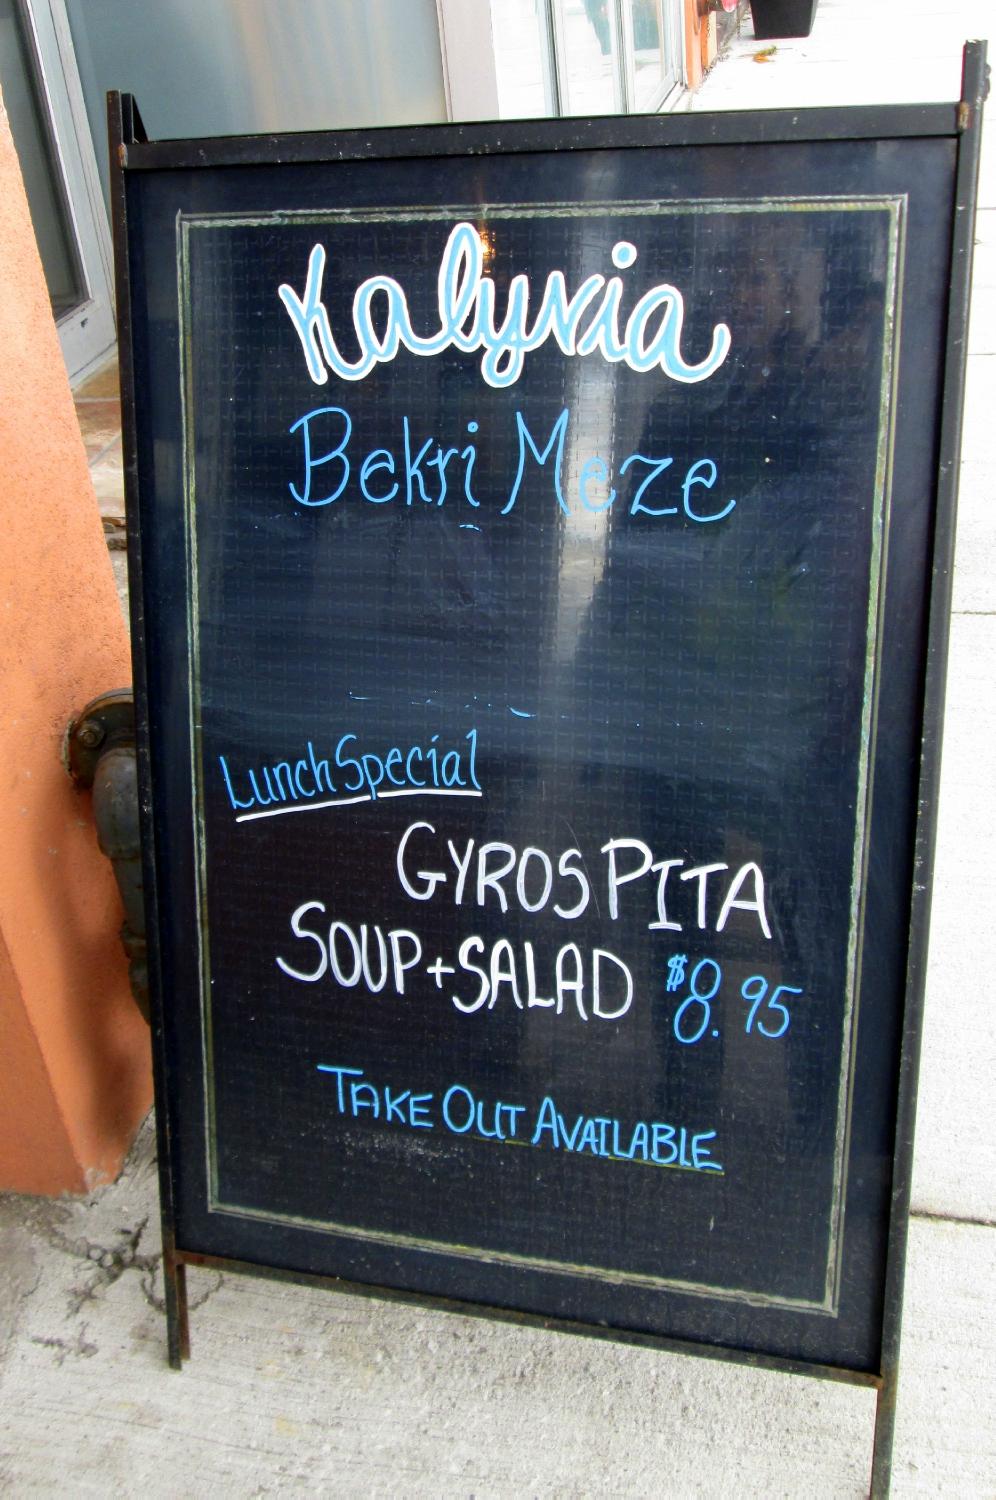 Kalyvia
Bekri Meze
Lunch Special
GYROS PITA
SOUP + SALAD $8.95
TAKE OUT AVAILABLE